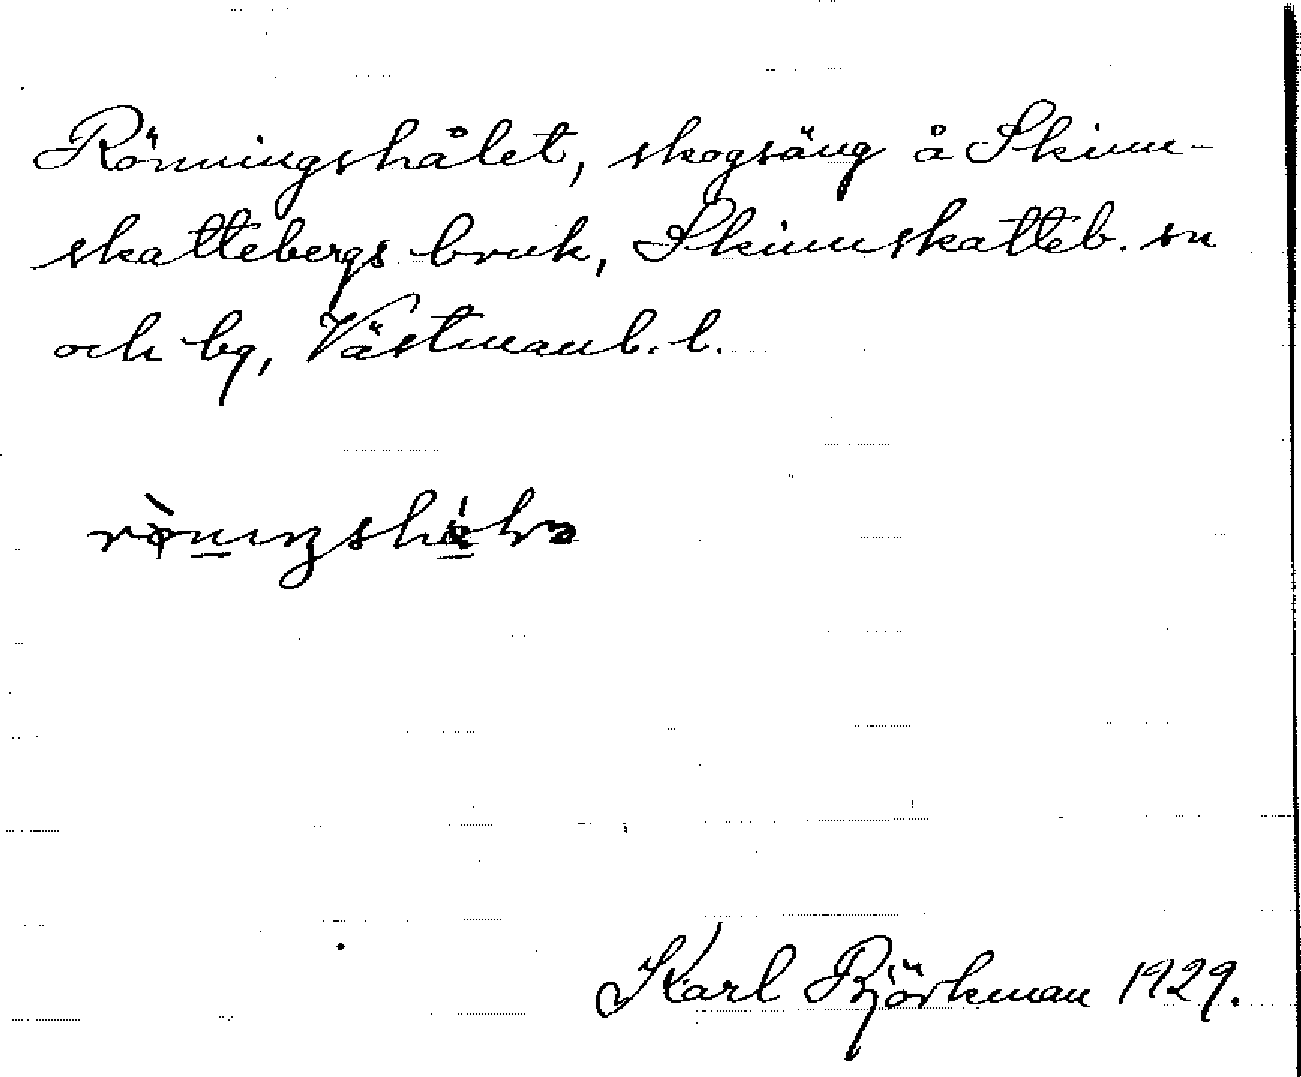 Rönningshålet, skogsäng å Skinn-
skattebergs bruk, Skinnskatteb. sn
och bg, Västmanl. l.
Karl Björkman 1929.